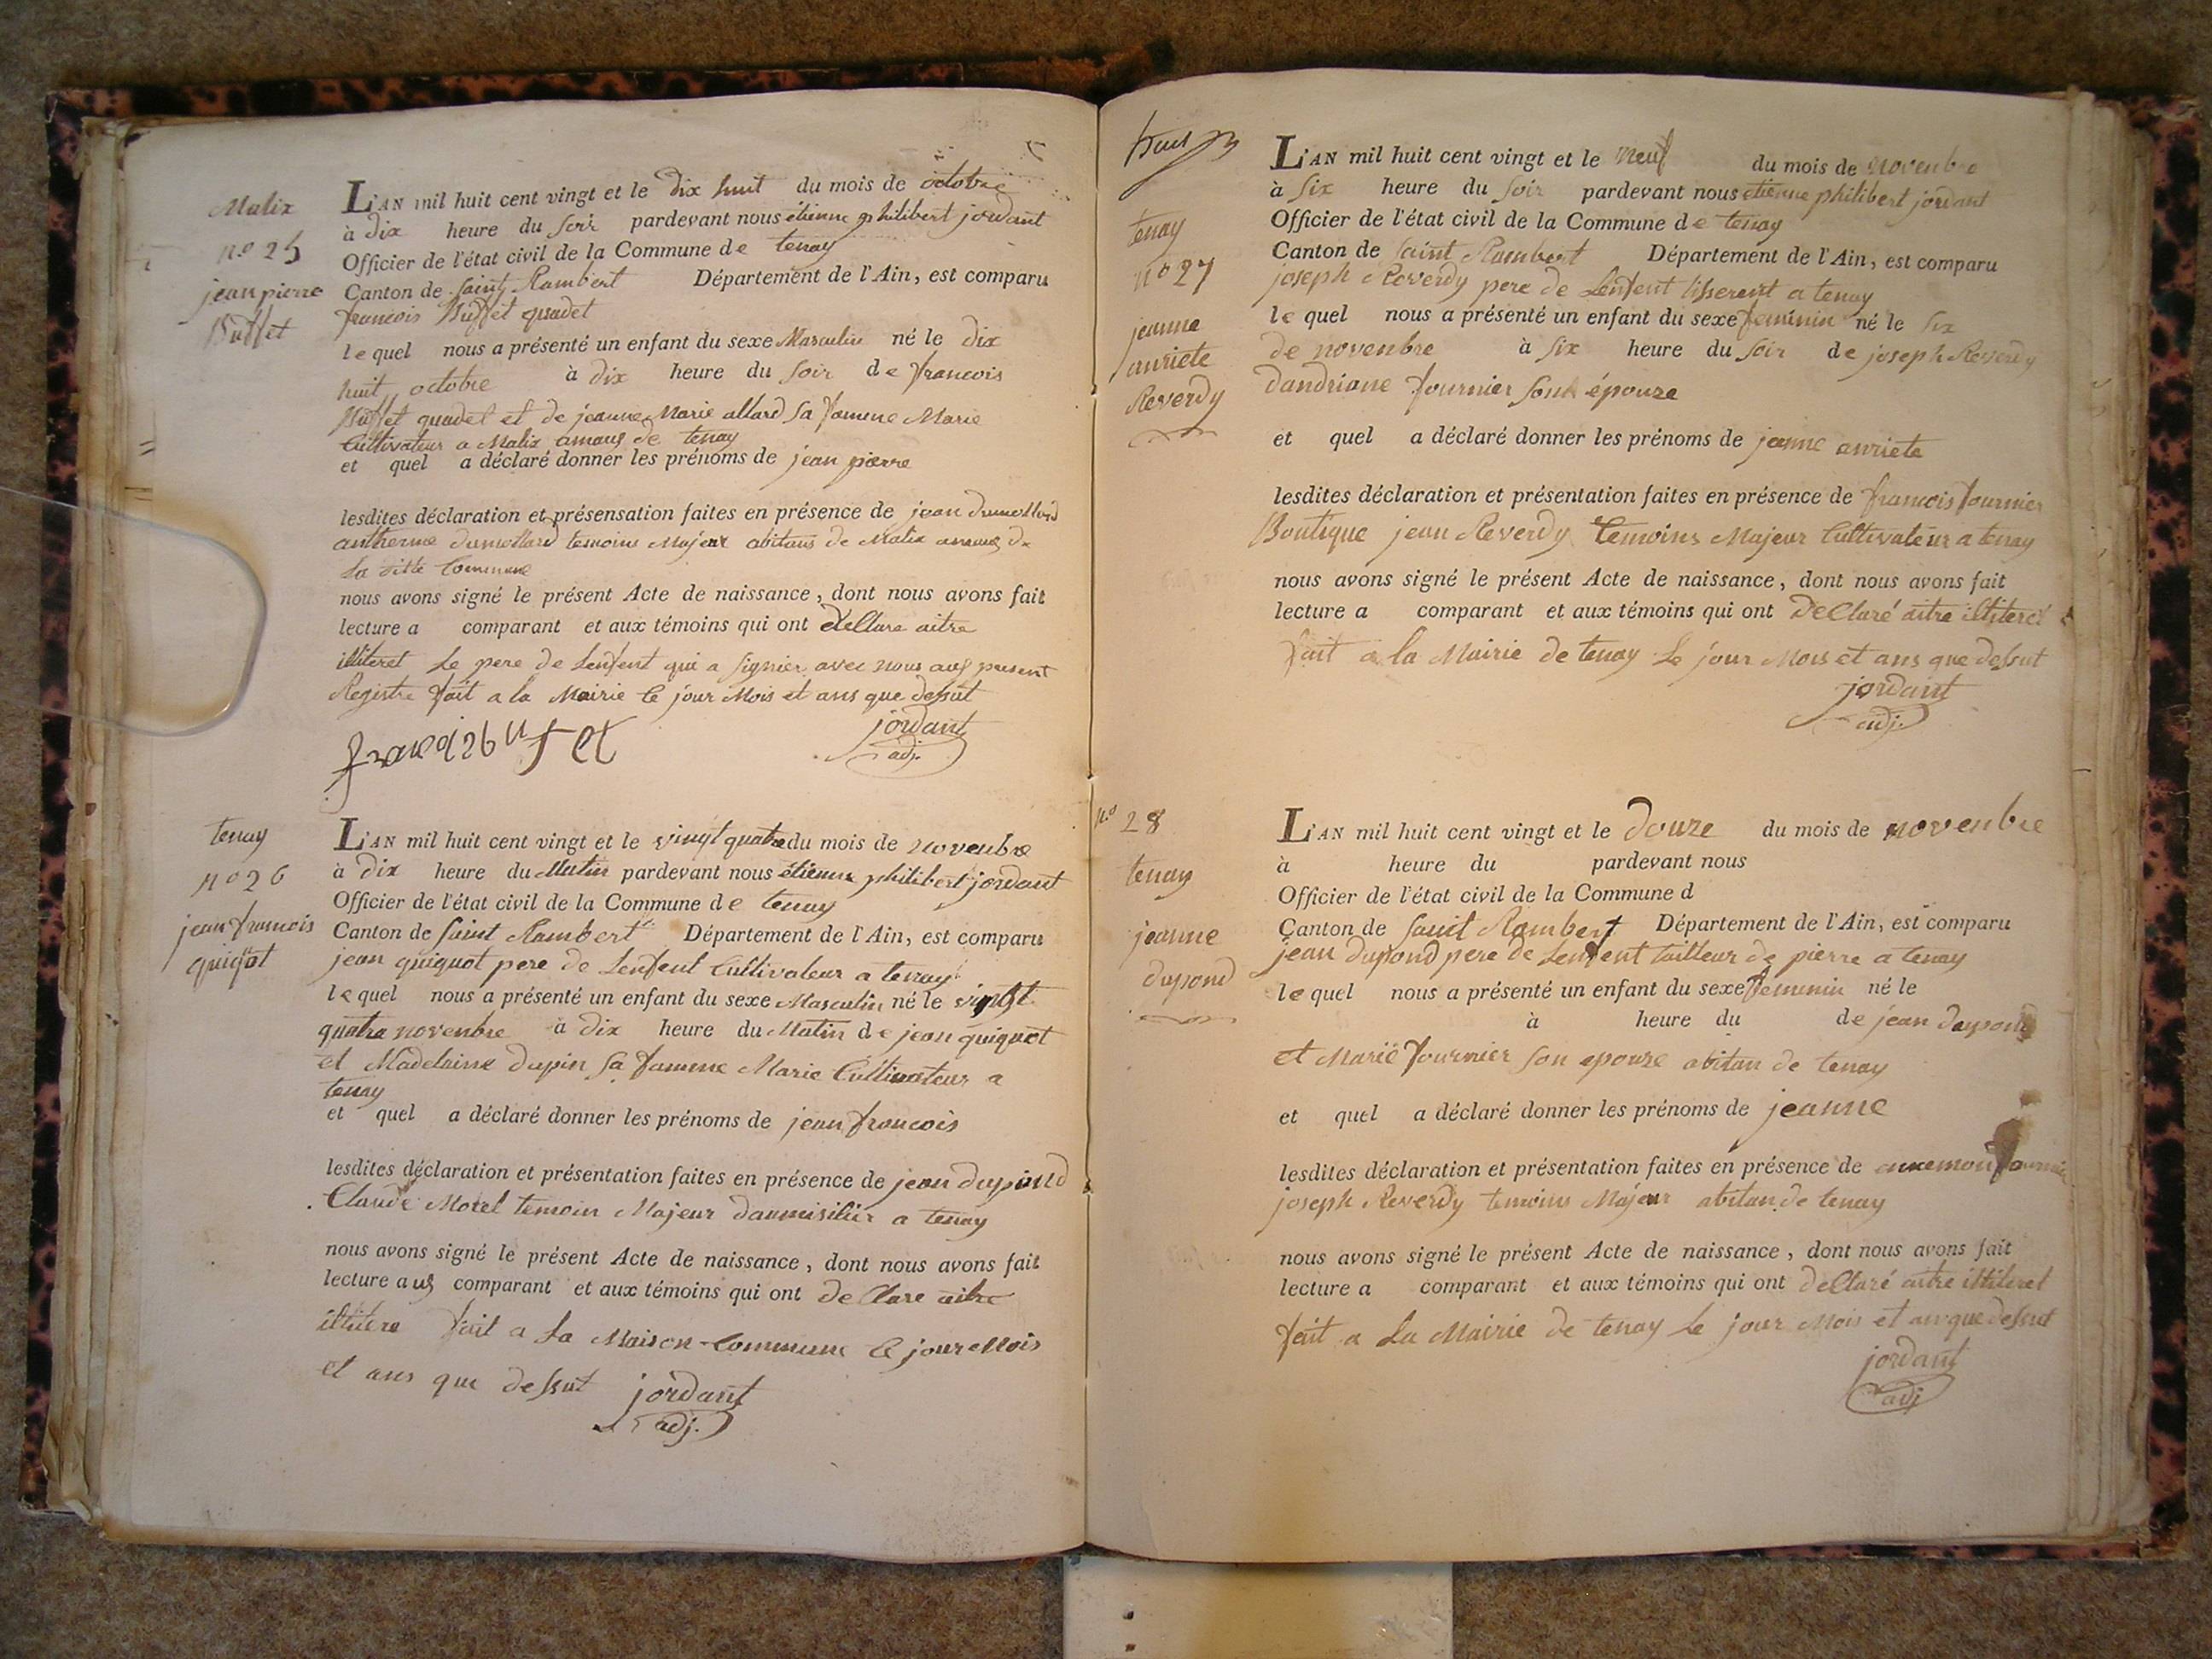 Malix
nº 25
jean pierre
Buffet
L'AN mil huit cent vingt et le dix huit du mois de octobre
à dix heure du soir pardevant nous étienne philibert jordant
Officier de l'état civil de la Commune de tenay
Canton de saint Rambert Département de l'Ain, est comparu
francois Buffet quadet
le quel nous a présenté un enfant du sexe Masculin né le dix
huit octobre à dix heure du soir de francois
Buffet quadet et de jeanne Marie allard sa famme Marie
Cultivateur a Malix amaus de tenay
et quel a déclaré donner les prénoms de jean pierre
lesdites déclaration et présensation faites en présence de jean dumollard
antherme dumollard temoins Majeur abitans de Malix amaus de
la ditte Commune
nous avons signé le présent Acte de naissance, dont nous avons fait
lecture a comparant et aux témoins qui ont déClare aitre
illiteret Le pere de Lenfent qui a signier avec nous auf present
Registre fait a la Mairie le jour Mois et ans que dessut
jordant
adj.
tenay
nº 26
jean francois
quiquot
L'AN mil huit cent vingt et le vingt quatre du mois de novenbre
à dix heure du Matin pardevant nous étienne philibert jordant
Officier de l'état civil de la Commune de tenay
Canton de saint Rambert Département de l'Ain, est comparu
jean quiquot pere de Lenfent Cultivateur a tenay
le quel nous a présenté un enfant du sexe Masculin né le vingt
quatre novenbre à dix heure du Matin de jean quiquot
et Madelaine dupin sa famme Marie Cultivateur a
tenay
et quel a déclaré donner les prénoms de jean francois
lesdites déclaration et présentation faites en présence de jean dupond
Claude Motel temoin Majeur daumisiliér a tenay
nous avons signé le présent Acte de naissance, dont nous avons fait
lecture aux comparant et aux témoins qui ont deClare aitre
illitere fait a La Maison Commune le jour Mois
et ans que dessut jordant
adj.
tenay
nº 27
jeanne
anriete
Reverdy
L'AN mil huit cent vingt et le neuf du mois de novenbre
à six heure du soir pardevant nous étienne philibert jordant
Officier de l'état civil de la Commune de tenay
Canton de saint Rambert Département de l'Ain, est comparu
joseph Reverdy pere de Lenfent tisserent a tenay
le quel nous a présenté un enfant du sexe feminin né le six
de novenbre à six heure du soir de joseph Reverdy
dandriane fournier son épouze
et quel a déclaré donner les prénoms de jeanne anriete
lesdites déclaration et présentation faites en présence de francois fournier
Boutique jean Reverdy temoins Majeur Cultivateur a tenay
nous avons signé le présent Acte de naissance, dont nous avons fait
lecture a comparant et aux témoins qui ont déClaré aitre illiteret
fait a la Mairie de tenay Le jour Mois et ans que dessut
jordant
adj.
nº 28
tenay
jeanne
dupond
L'AN mil huit cent vingt et le douze du mois de novenbre
à heure du pardevant nous
Officier de l'état civil de la Commune d
Canton de saint Rambert Département de l'Ain, est comparu
jean dupond pere de Lenfent tailleur de pierre a tenay
le quel nous a présenté un enfant du sexe feminin né le
à heure du de jean dupond
et Marie fournier son epouze abitan de tenay
et quel a déclaré donner les prénoms de jeanne
lesdites déclaration et présentation faites en présence de annemon fournier
joseph Reverdy temoins Majeur abitan de tenay
nous avons signé le présent Acte de naissance, dont nous avons fait
lecture a comparant et aux témoins qui ont deClaré aitre illiteret
fait a La Mairie de tenay Le jour Mois et an que dessut
jordant
adj